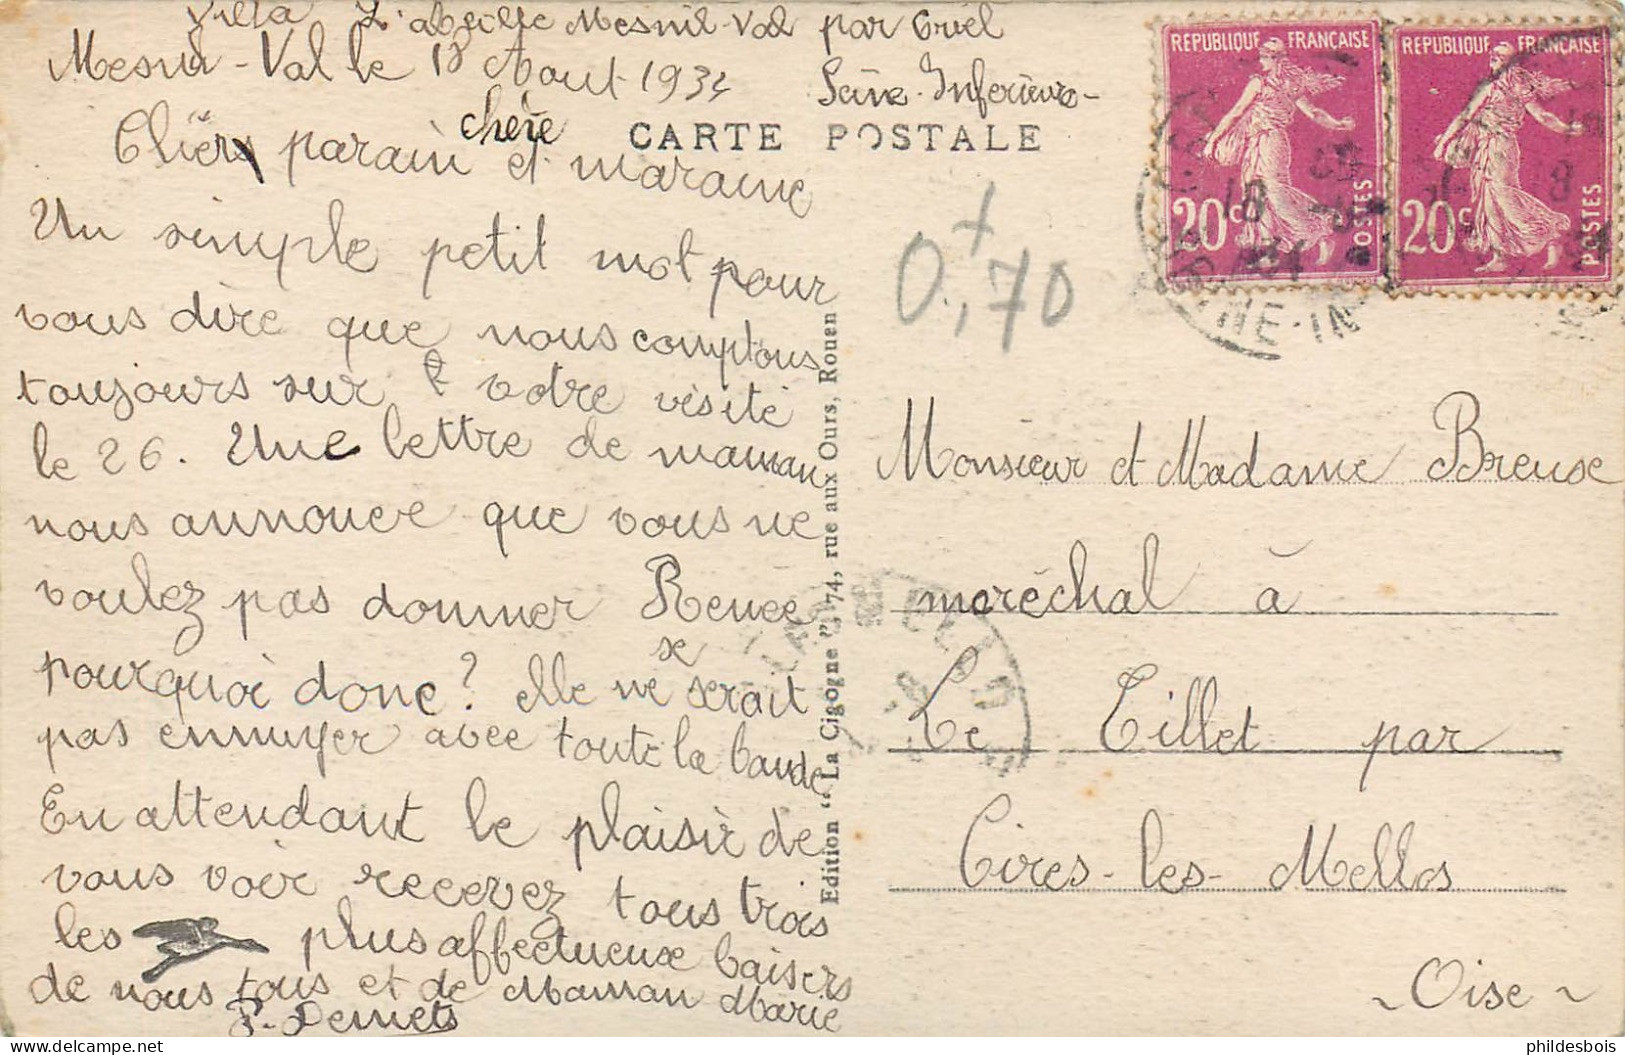 Villa L'abeille Mesnil-Val par Criel
Mesnil-Val le 18 Aout 1934 Seine-Inferieure-
CARTE POSTALE
chère
Chers parain et maraine
Un simple petit mot pour
vous dire que nous comptons
toujours sur votre visite
le 26. Une lettre de maman
nous annonce que vous ne
voulez pas donner Renee
pourquoi donc? elle ne se serait
pas ennuyer avec toute la bande
En attendant le plaisir de
vous voir recevez tous trois
les plus affectueux baisers
de nous tous et de Maman Marie
P. Demets
Edition "La Cigogne", 74, rue aux Ours, Rouen
0,70
REPUBLIQUE FRANÇAISE
20c POSTES
REPUBLIQUE FRANÇAISE
20c POSTES
Monsieur et Madame Breuse
maréchal à
Le Tillet par
Cires-les-Mellos
~ Oise ~
https://www.delcampe.net
phildesbois